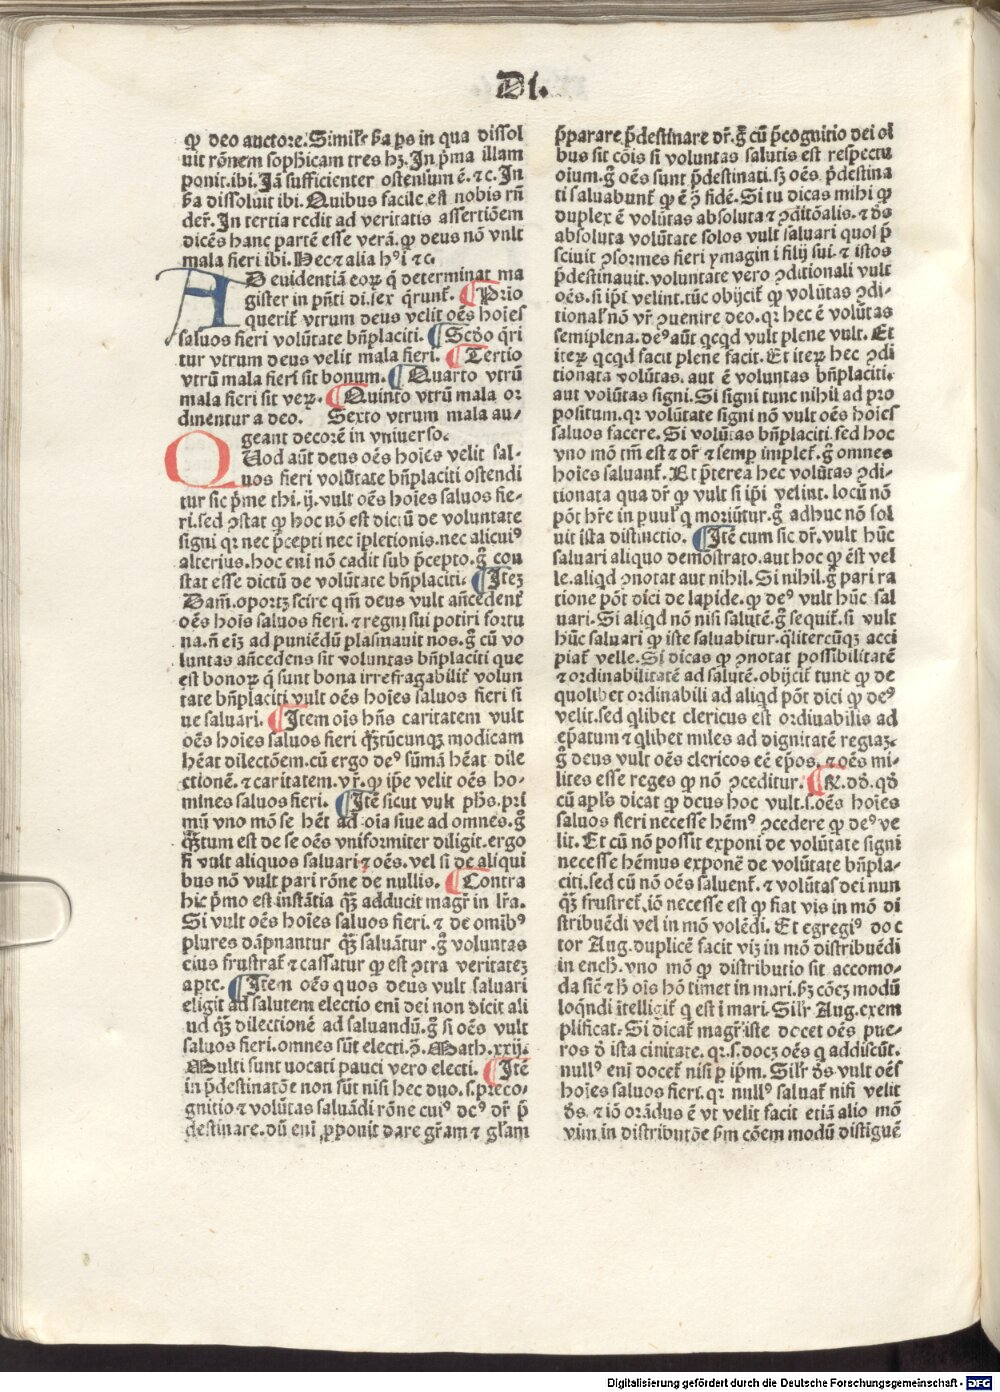 Di.
ꝙ deo auctore. Simil'r s̄a ps in qua dissol
uit rōnem sophicam tres hꝫ. In p̄ma illam
ponit. ibi. Jā sufficienter ostensum ē. ⁊c. In
s̄a dissoluit ibi. Quibus facile est nobis rn̄
der̄. In tertia redit ad veritatis assertiōem
dicēs hanc partē esse verā. ꝙ deus nō vult
mala fieri ibi. Hec ⁊ alia hꝰi ⁊c̄
AD euidentiā eoꝝ q̄ determinat ma
gister in pn̄ti di. sex q̄runt᷑. ¶ Prīo
querit᷑ vtrum deus velit oēs hoīes
saluos fieri volūtate bn̄placiti. ¶ Scd̄o q̄ri
tur vtrum deus velit mala fieri. ¶ Tertio
vtrū mala fieri sit bonum. ¶ Quarto vtrū
mala fieri sit veꝝ. ¶ Quinto vtrū mala or
dinentur a deo. Sexto vtrum mala au-
geant decorē in vniuerso.
QUod aūt deus oēs hoīes velit sal-
uos fieri volūtate bn̄placiti ostendi
tur sic p̄me thi. ij. vult oēs hoīes saluos fie-
ri. sed ꝯstat ꝙ hoc nō est dictū de voluntate
signi qꝛ nec p̄cepti nec īpletionis. nec alicuiꝰ
alterius. hoc eni nō cadit sub p̄cepto. ḡ con
stat esse dictū de volūtate bn̄placiti. ¶ Iteꝫ
Dam̄. oportꝫ scire qm̄ deus vult an̄cedent᷑
oēs hoīs saluos fieri. ⁊ regni sui potiri fortu
na. n̄ eiꝫ ad puniēdū plasmauit nos. ḡ cū vo
luntas an̄cedens sit voluntas bn̄placiti que
est bonoꝝ q̄ sunt bona irrefragabilit᷑ volun
tate bn̄placiti vult oēs hoīes saluos fieri si
ue saluari. ¶ Item oīs hn̄s caritatem vult
oēs hoīes saluos fieri qꝫtūcunqꝫ modicam
hēat dilectōem. cū ergo deꝰ sūmā hēat dile
ctionē. ⁊ caritatem. vr̄. ꝙ ip̄e velit oēs ho-
mines saluos fieri. ¶ Itē sicut vult ph̄s. pri
mū vno mō se hēt ad oīa siue ad omnes. ḡ
qꝫtum est de se oēs vniformiter diligit. ergo
si vult aliquos saluari ⁊ oēs. vel si de aliqui
bus nō vult pari rōne de nullis. ¶ Contra
hic p̄mo est instātia qꝫ adducit magr̄ in lr̄a.
Si vult oēs hoīes saluos fieri. ⁊ de omibꝰ
plures dāpnantur qꝫ saluātur. ḡ voluntas
eius frustrat᷑ ⁊ cassatur ꝙ est ꝯtra veritateꝫ
aꝑte. ¶ Item oēs quos deus vult saluari
eligit ad salutem electio eni dei non dicit ali
ud qꝫ dilectionē ad saluandū. ḡ si oēs vult
saluos fieri. omnes sūt electi. ꝯ̄. Math. xxij.
Multi sunt uocati pauci vero electi. ¶ Itē
in p̄destinatōe non sūt nisi hec duo. s. preco-
gnitio ⁊ volūtas saluādi rōne cuiꝰ dꝰ dr̄ p̄
destinare. dū eni ꝓponit dare gr̄am ⁊ gl'am
p̄parare p̄destinare dr̄. ḡ cū p̄cognitio dei oī
bus sit cōis si voluntas salutis est respectu
oīum. ḡ oēs sunt p̄destinati. sꝫ oēs p̄destina
ti saluabunt᷑ ꝙ ē ꝯ̄ fidē. Si tu dicas mihi ꝙ
duplex ē volūtas absoluta ⁊ ꝯditōalis. ⁊ ds̄
absoluta volūtate solos vult saluari quos p̄
sciuit ꝯformes fieri ymagini filij sui. ⁊ istos
p̄destinauit. voluntate vero ꝯditionali vult
oēs. si ip̄i velint. tūc obijcit᷑ ꝙ volūtas ꝯdi-
tional' nō vr̄ ꝯuenire deo. qꝛ hec ē volūtas
semiplena. deꝰ aūt qcqd vult plene vult. Et
iteꝝ qcqd facit plene facit. Et iteꝝ hec ꝯdi
tionata volūtas. aut ē voluntas bn̄placiti.
aut volūtas signi. Si signi tunc nihil ad pro
positum. qꝛ volūtate signi nō vult oēs hoīes
saluos facere. Si volūtas bn̄placiti. sed hoc
vno mō tm̄ est ⁊ dr̄ ⁊ semꝑ implet᷑. ḡ omnes
hoīes saluant᷑. Et p̄terea hec volūtas ꝯdi-
tionata qua dr̄ ꝙ vult si ip̄i velint. locū nō
pōt hr̄e in puul' q̄ moriūtur. ḡ adhuc nō sol
uit ista distinctio. ¶ Itē cum sic dr̄. vult hūc
saluari aliquo demōstrato. aut hoc ꝙ est vel
le. aliqd ꝯnotat aut nihil. Si nihil. ḡ pari ra
tione pōt dici de lapide. ꝙ deꝰ vult hūc sal
uari. Si aliqd nō nisi salutē. ḡ sequit᷑. si vult
hūc saluari ꝙ iste saluabitur. qlitercūqꝫ acci
piat᷑ velle. Si dicas ꝙ ꝯnotat possibilitatē
⁊ ordinabilitatē ad salutē. obijcit᷑ tunc ꝙ de
quolibet ordinabili ad aliqd pōt dici ꝙ deꝰ
velit. sed qlibet clericus est ordinabilis ad
ep̄atum ⁊ qlibet miles ad dignitatē regiaꝫ.
ḡ deus vult oēs clericos eē ep̄os. ⁊ oēs mi-
lites esse reges ꝙ nō ꝯceditur. ¶ R̄. dd̄. qd̄
cū apl's dicat ꝙ deus hoc vult. s. oēs hoīes
saluos fieri necesse hēmꝰ ꝯcedere ꝙ deꝰ ve
lit. Et cū nō possit exponi de volūtate signi
necesse hēmus exponē de volūtate bn̄pla-
citi. sed cū nō oēs saluent᷑. ⁊ volūtas dei nun
qꝫ frustret᷑. iō necesse est ꝙ fiat vis in mō di
stribuēdi vel in mō volēdi. Et egregiꝰ doc
tor Aug. duplicē facit viꝫ in mō distribuēdi
in ench. vno mō ꝙ distributio sit accomo-
da sic̄ ⁊ h̄ oīs hō timet in mari. sꝫ cōeꝫ modū
loqndi ītelligit᷑ q̄ est ī mari. Sil'r Aug. exem
plificat. Si dicat᷑ magr̄ iste docet oēs pue-
ros d̄ ista ciuitate. qꝛ. s. docꝫ oēs q̄ addiscūt.
nullꝰ eni docet᷑ nisi ꝑ ip̄m. Sil'r ds̄ vult oēs
hoīes saluos fieri. qꝛ nullꝰ saluat᷑ nisi velit
ds̄. ⁊ iō orādus ē vt velit facit etiā alio mō
vim in distributōe s̄m cōem modū distīguē
Digitalisierung gefördert durch die Deutsche Forschungsgemeinschaft - DFG